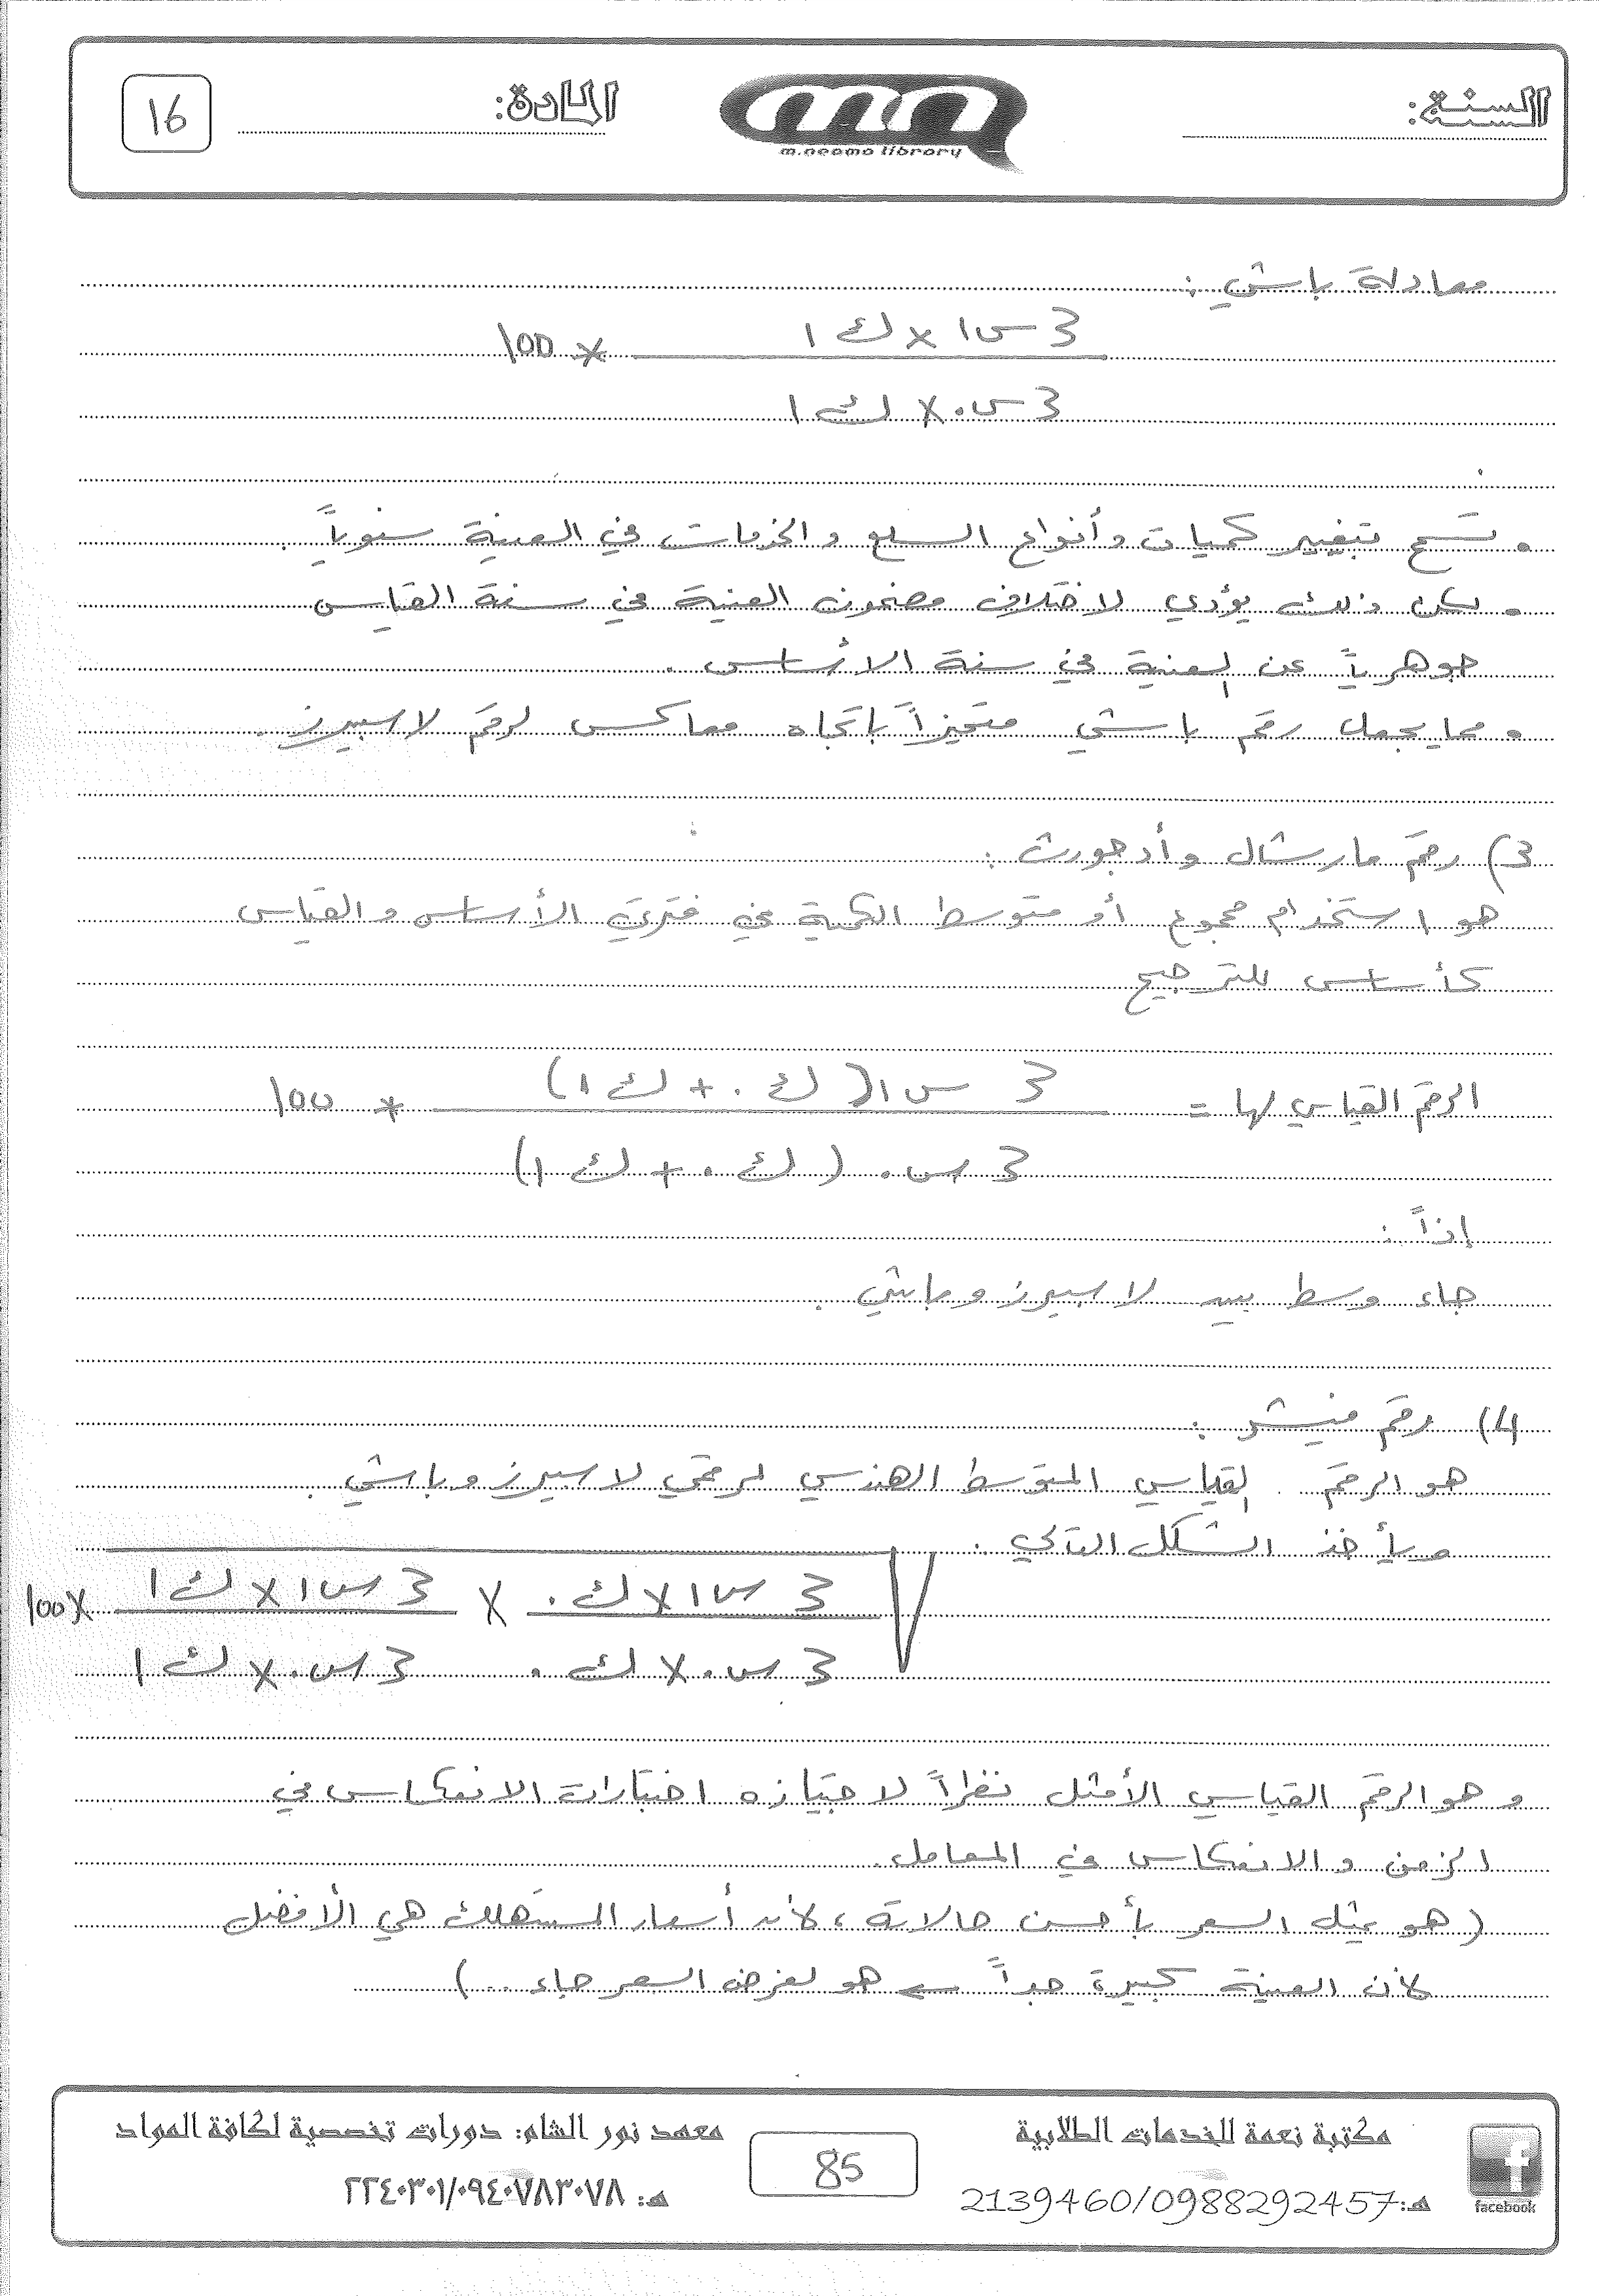 السنة:
m.neama library
المادة:
16
معادلة باشي :
3 س1 × ك1
* 100
3 س0 × ك1
• تسمح بتغيير كميات وأنواع السلع والخدمات في العينة سنوياً .
• لكن ذلك يؤدي لاختلاف مضمون العينة في سنة القياس
جوهرياً عن العينة في سنة الأساس .
• مما يجعل رقم باشي متحيزاً باتجاه معاكس لرقم لاسبيرز .
3) رقم مارشال وأدجورث :
هو استخدام مجموع أو متوسط الكمية في فترتي الأساس والقياس
كأساس للترجيح
الرقم القياسي لها = 3 س1 (ك0 + ك1) * 100
3 س0 (ك0 + ك1)
إذاً :
جاء وسط بين لاسبيرز وباشي .
4) رقم فيشر :
هو الرقم القياسي المتوسط الهندسي لرقمي لاسبيرز وباشي .
ويأخذ الشكل التالي .
√ 3 س1 × ك0 × 3 س1 × ك1 ×100
3 س0 × ك0 3 س0 × ك1
وهو الرقم القياسي الأمثل نظراً لاجتيازه اختبارات الانعكاس في
الزمن والانعكاس في المعامل .
( هو يمثل السعر بأحسن حالاته ، لأنه أسعار المستهلك هي الأفضل
لأن العينة كبيرة جداً ← هو لغرض السعر جاء ... )
مكتبة نعمة للخدمات الطلابية
هـ: 2139460/0988292457
facebook
85
معهد نور الشام: دورات تخصصية لكافة المواد
هـ: ٢٢٤٠٣٠١/٠٩٤٠٧٨٣٠٧٨